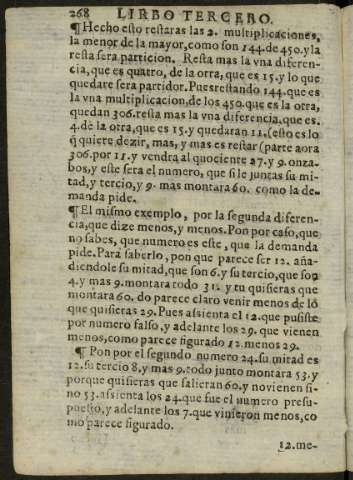 268 LIRBO TERCERO.
¶Hecho esto restaras las 2. multiplicaciones,
la menor de la mayor, como son 144. de 450. y la
resta sera particion. Resta mas la vna diferen-
cia, que es quatro, de la otra, que es 15. y lo que
quedare sera partidor. Pues restando 144. que es
la vna multiplicacion, de los 450. que es la otra,
quedan 306. resta mas la vna diferencia, que es.
4. de la otra, que es 15. y quedaran 11. (esto es lo
q̃ quiere dezir, mas, y mas es restar (parte aora
306. por 11. y vendra al quociente 27. y 9. onza-
bos, y este sera el numero, que si le juntas su mi-
tad, y tercio, y 9. mas montara 60. como la de-
manda pide.
¶El mismo exemplo, por la segunda diferen-
cia, que dize menos, y menos. Pon por caso, que
no sabes, que numero es este, que la demanda
pide. Para saberlo, pon que parece ser 12. aña-
diendole su mitad, que son 6. y su tercio, que son
4. y mas 9. montara todo 31. y tu quisieras que
montara 60. do parece claro venir menos de lo
que quisieras 29. Pues assienta el 12. que pusiste
por numero falso, y adelante los 29. que vienen
menos, como parece figurado 12. menos 29.
¶ Pon por el segundo numero 24. su mitad es
12. su tercio 8. y mas 9. todo junto monta 53. y
porque quisieras que salieran 60. y no vienen si-
no 53. assienta los 24. que fue el numero presu-
puesto, y adelante los 7. que vinieron menos, co
mo parece figurado.
12. me-